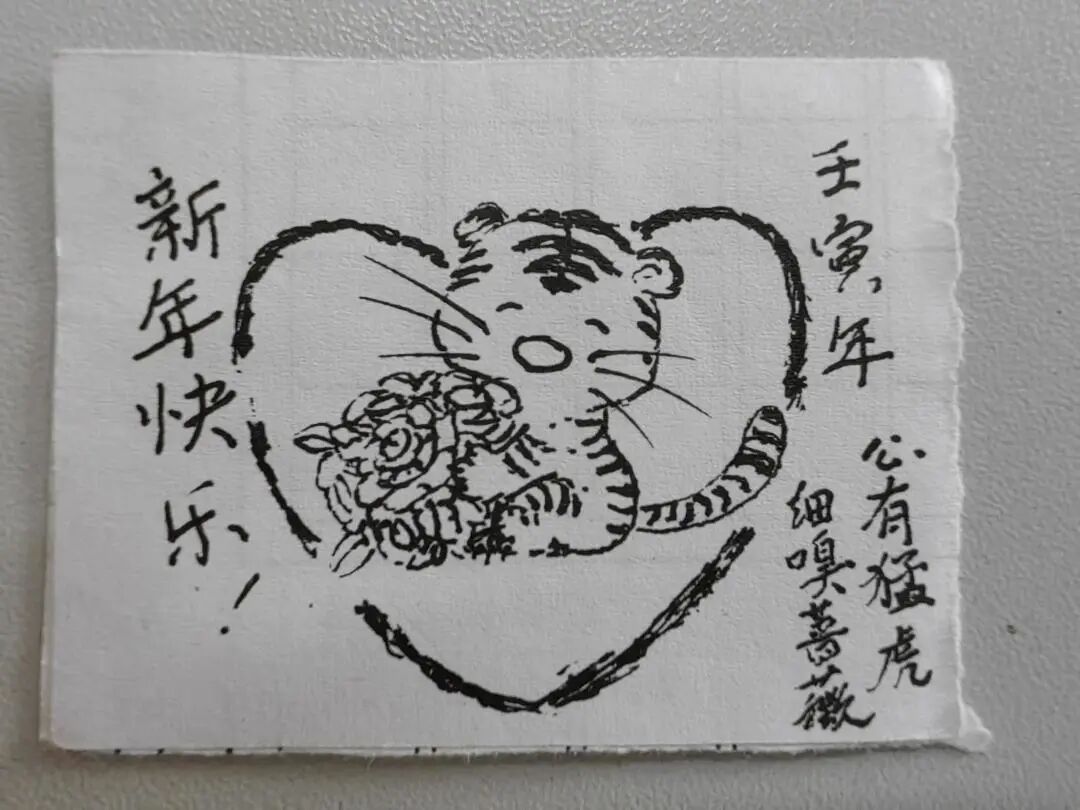 壬寅年
公有猛虎
细嗅蔷薇
新年快乐!